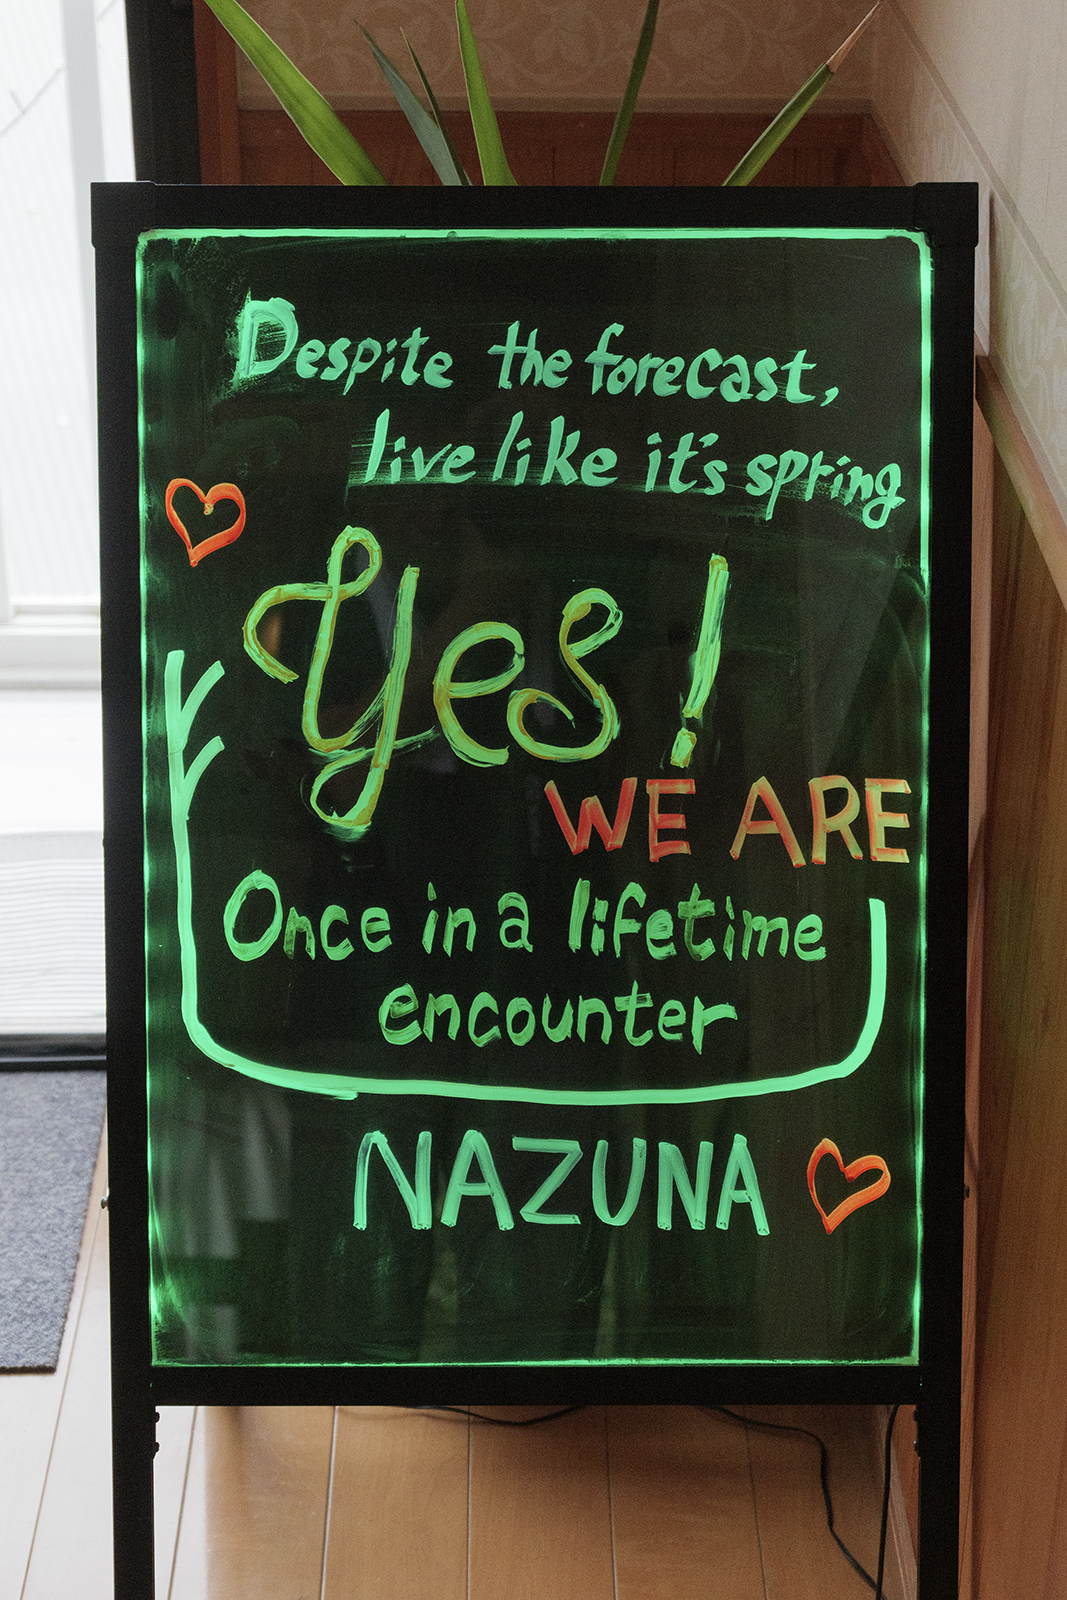 Despite the forecast,
live like it's spring
Yes!
WE ARE
Once in a lifetime
encounter
NAZUNA